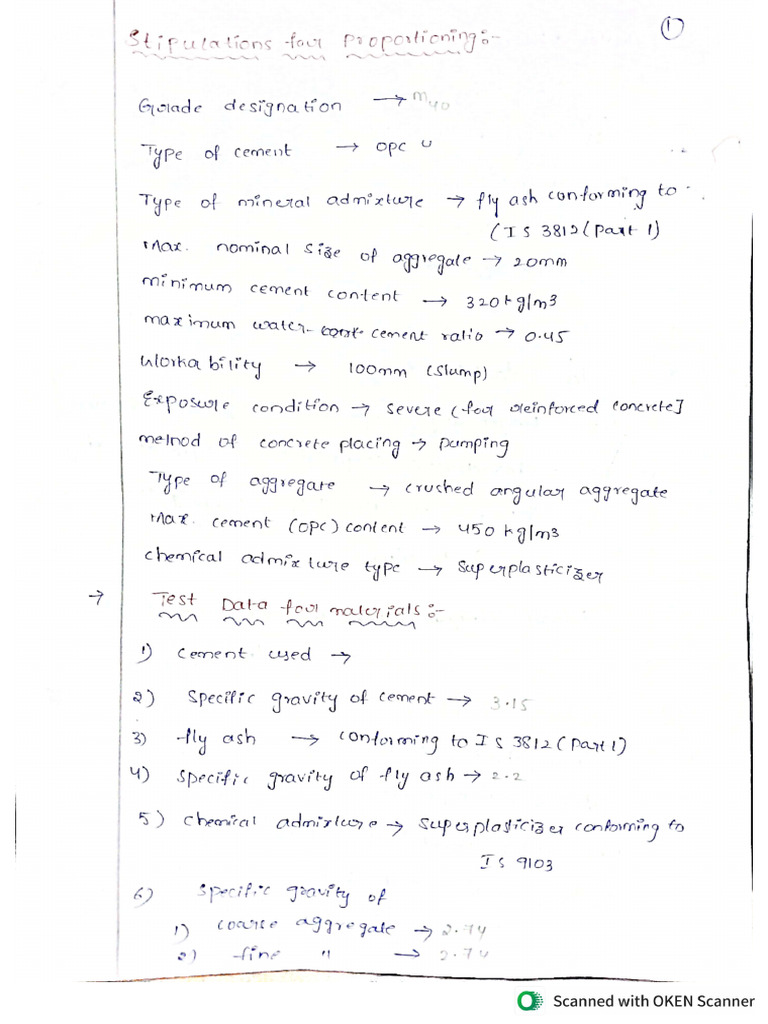 1
Stipulations for Proportioning:-
Grade designation → M40
Type of cement → OPC
Type of mineral admixture → fly ash conforming to
(IS 3812 (Part 1)
Max. nominal size of aggregate → 20mm
minimum cement content → 320 kg/m3
maximum water- cement ratio → 0.45
Workability → 100mm (Slump)
Exposure condition → severe (for reinforced concrete]
method of concrete placing → pumping
Type of aggregate → crushed angular aggregate
Max. cement (OPC) content → 450 kg/m3
chemical admixture type → superplasticizer
→ Test Data for materials:-
1) cement used →
2) Specific gravity of cement → 3.15
3) fly ash → conforming to IS 3812 (Part 1)
4) Specific gravity of fly ash → 2.2
5) chemical admixture → superplasticizer conforming to
IS 9103
6) Specific gravity of
1) coarse aggregate → 2.74
2) fine " → 2.74
Scanned with OKEN Scanner